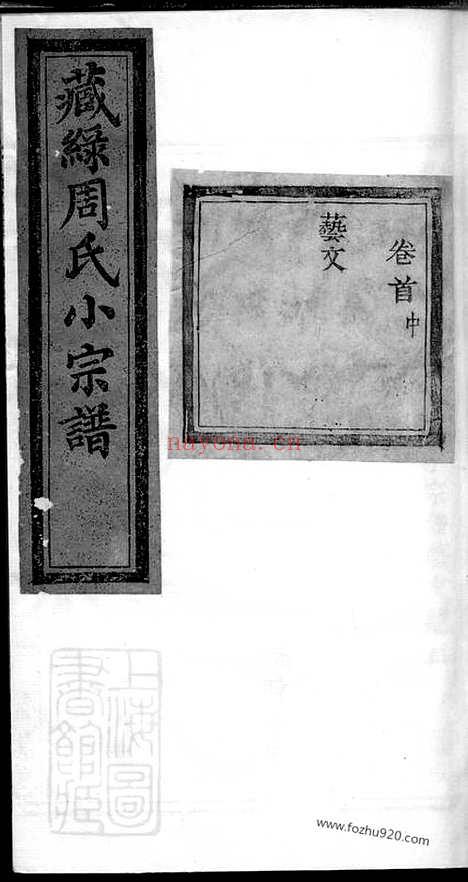 藏綠周氏小宗譜
卷首中
藝文
nayona.cn
上海圖
書館藏
www.fozhu920.com